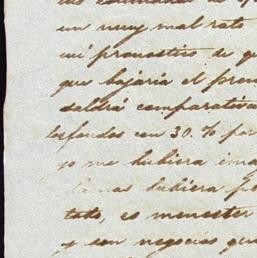 un muy mal rato
mi pronostico de qu
que bajaria el prem
saldrá comparativa
con 30.% por
yo me hubiera ima
hubiera p
tato, es menester
y son negocios que